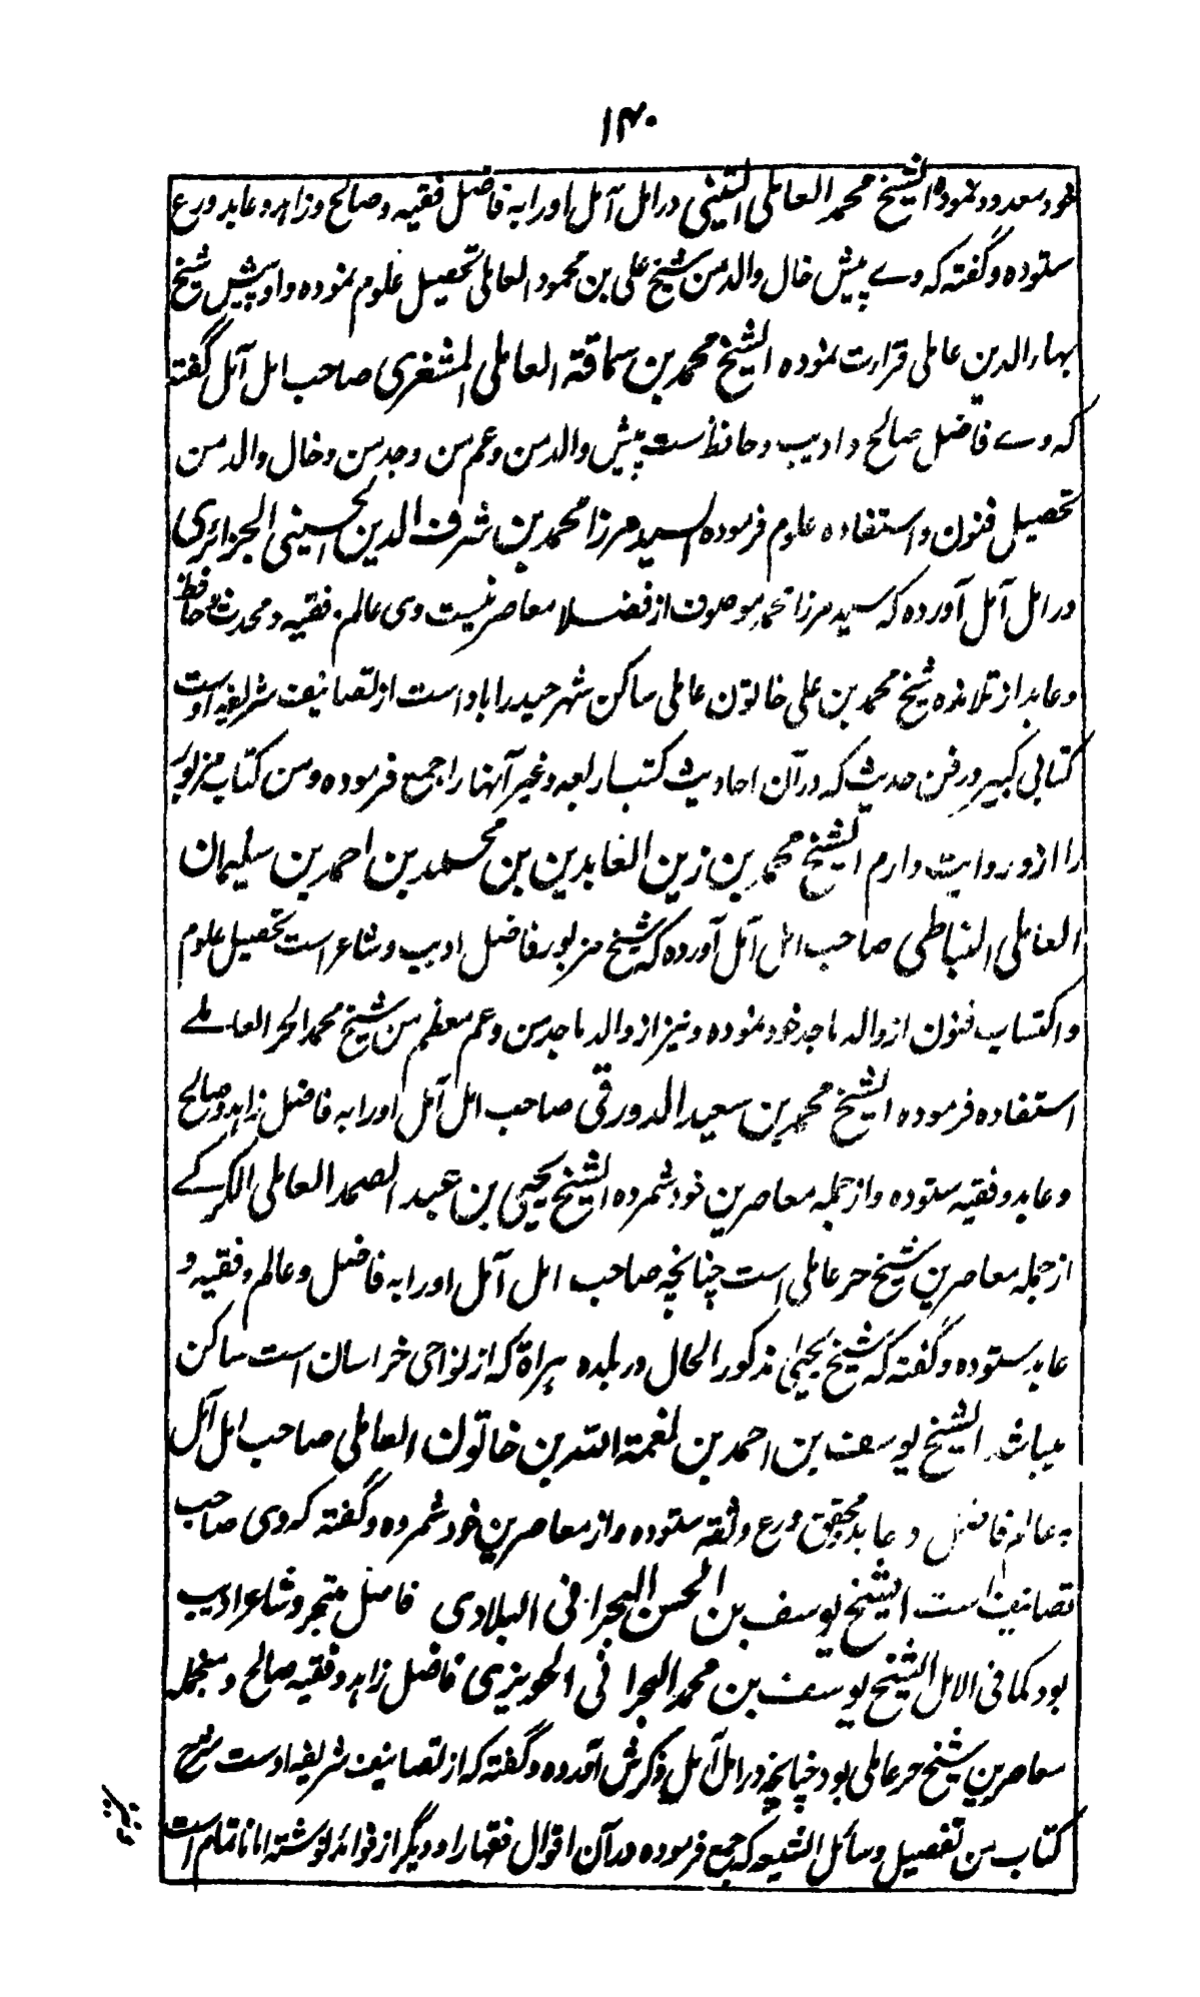 ۱۴۰
خود معدود نموده الشیخ محمد العاملی التبنینی در امل آمل اورا به فاضل فقیه و صالح و زاهد و عابد و ورع
ستوده و گفته که وے پیش خال والد من شیخ علی بن محمود العاملی تحصیل علوم نموده و او پیش شیخ
بهاء الدین عاملی قراءت نموده الشیخ محمد بن سماقة العاملی المشغری صاحب امل آمل گفته
که وے فاضل صالح و ادیب و حافظ ست پیش والد من و عم من و جد من و خال والد من
تحصیل فنون و استفاده علوم فرموده السید مرزا محمد بن شرف الدین الحسینی الجزائری
در امل آمل آورده که سید مرزا محمد موصوف از فضلا معاصرینست وی عالم فقیه و محدث و حافظ
و عابد از تلامذه شیخ محمد بن علی خاتون عاملی ساکن شهر حیدراباد است از تصانیف شریفه اوست
کتابی کبیر در فن حدیث که در آن احادیث کتب اربعه و غیر آنها را جمع فرموده و من کتاب مزبور
را ازو روایت دارم الشیخ محمد بن زین العابدین بن محمد بن احمد بن سلیمان
العاملی النباطی صاحب امل آمل آورده که شیخ مزبور فاضل ادیب و شاعر است تحصیل علوم
و اکتساب فنون از والد ماجد خود نموده و نیز از والد ماجد من و عم معظم من شیخ محمد الحر العاملے
استفاده فرموده الشیخ محمد بن سعید الدورقی صاحب امل آمل اورا به فاضل زاهد و صالح
و عابد و فقیه ستوده و از جمله معاصرین خود شمرده الشیخ یحیی بن عبد الصمد العاملی الکرکے
از جمله معاصرین شیخ حر عاملی است چنانچه صاحب امل آمل اورا به فاضل و عالم و فقیه و
عابد ستوده و گفته که شیخ یحیی مذکور الحال در بلده هراة که از نواحی خراسان است ساکن
میباشد الشیخ یوسف بن احمد بن نعمة الله بن خاتون العاملی صاحب امل آمل
به عالم فاضل و عابد محقق ورع وثقه ستوده و از معاصرین خود شمرده و گفته که وی صاحب
تصانیف است الشیخ یوسف بن الحسن البحرانی البلادی فاضل متبحر و شاعر ادیب
بود کما فی الامل الشیخ یوسف بن محمد البحرانی الحویزی فاضل زاهد و فقیه صالح و منجمله
معاصرین شیخ حر عاملی بود چنانچه در امل آمل ذکرش آورده و گفته که از تصانیف شریفه اوست شرح
کتاب من تفصیل وسائل الشیعه که جمع فرموده در آن اقوال فقها را و دیگر از فوائد نوشته اما ناتمام است